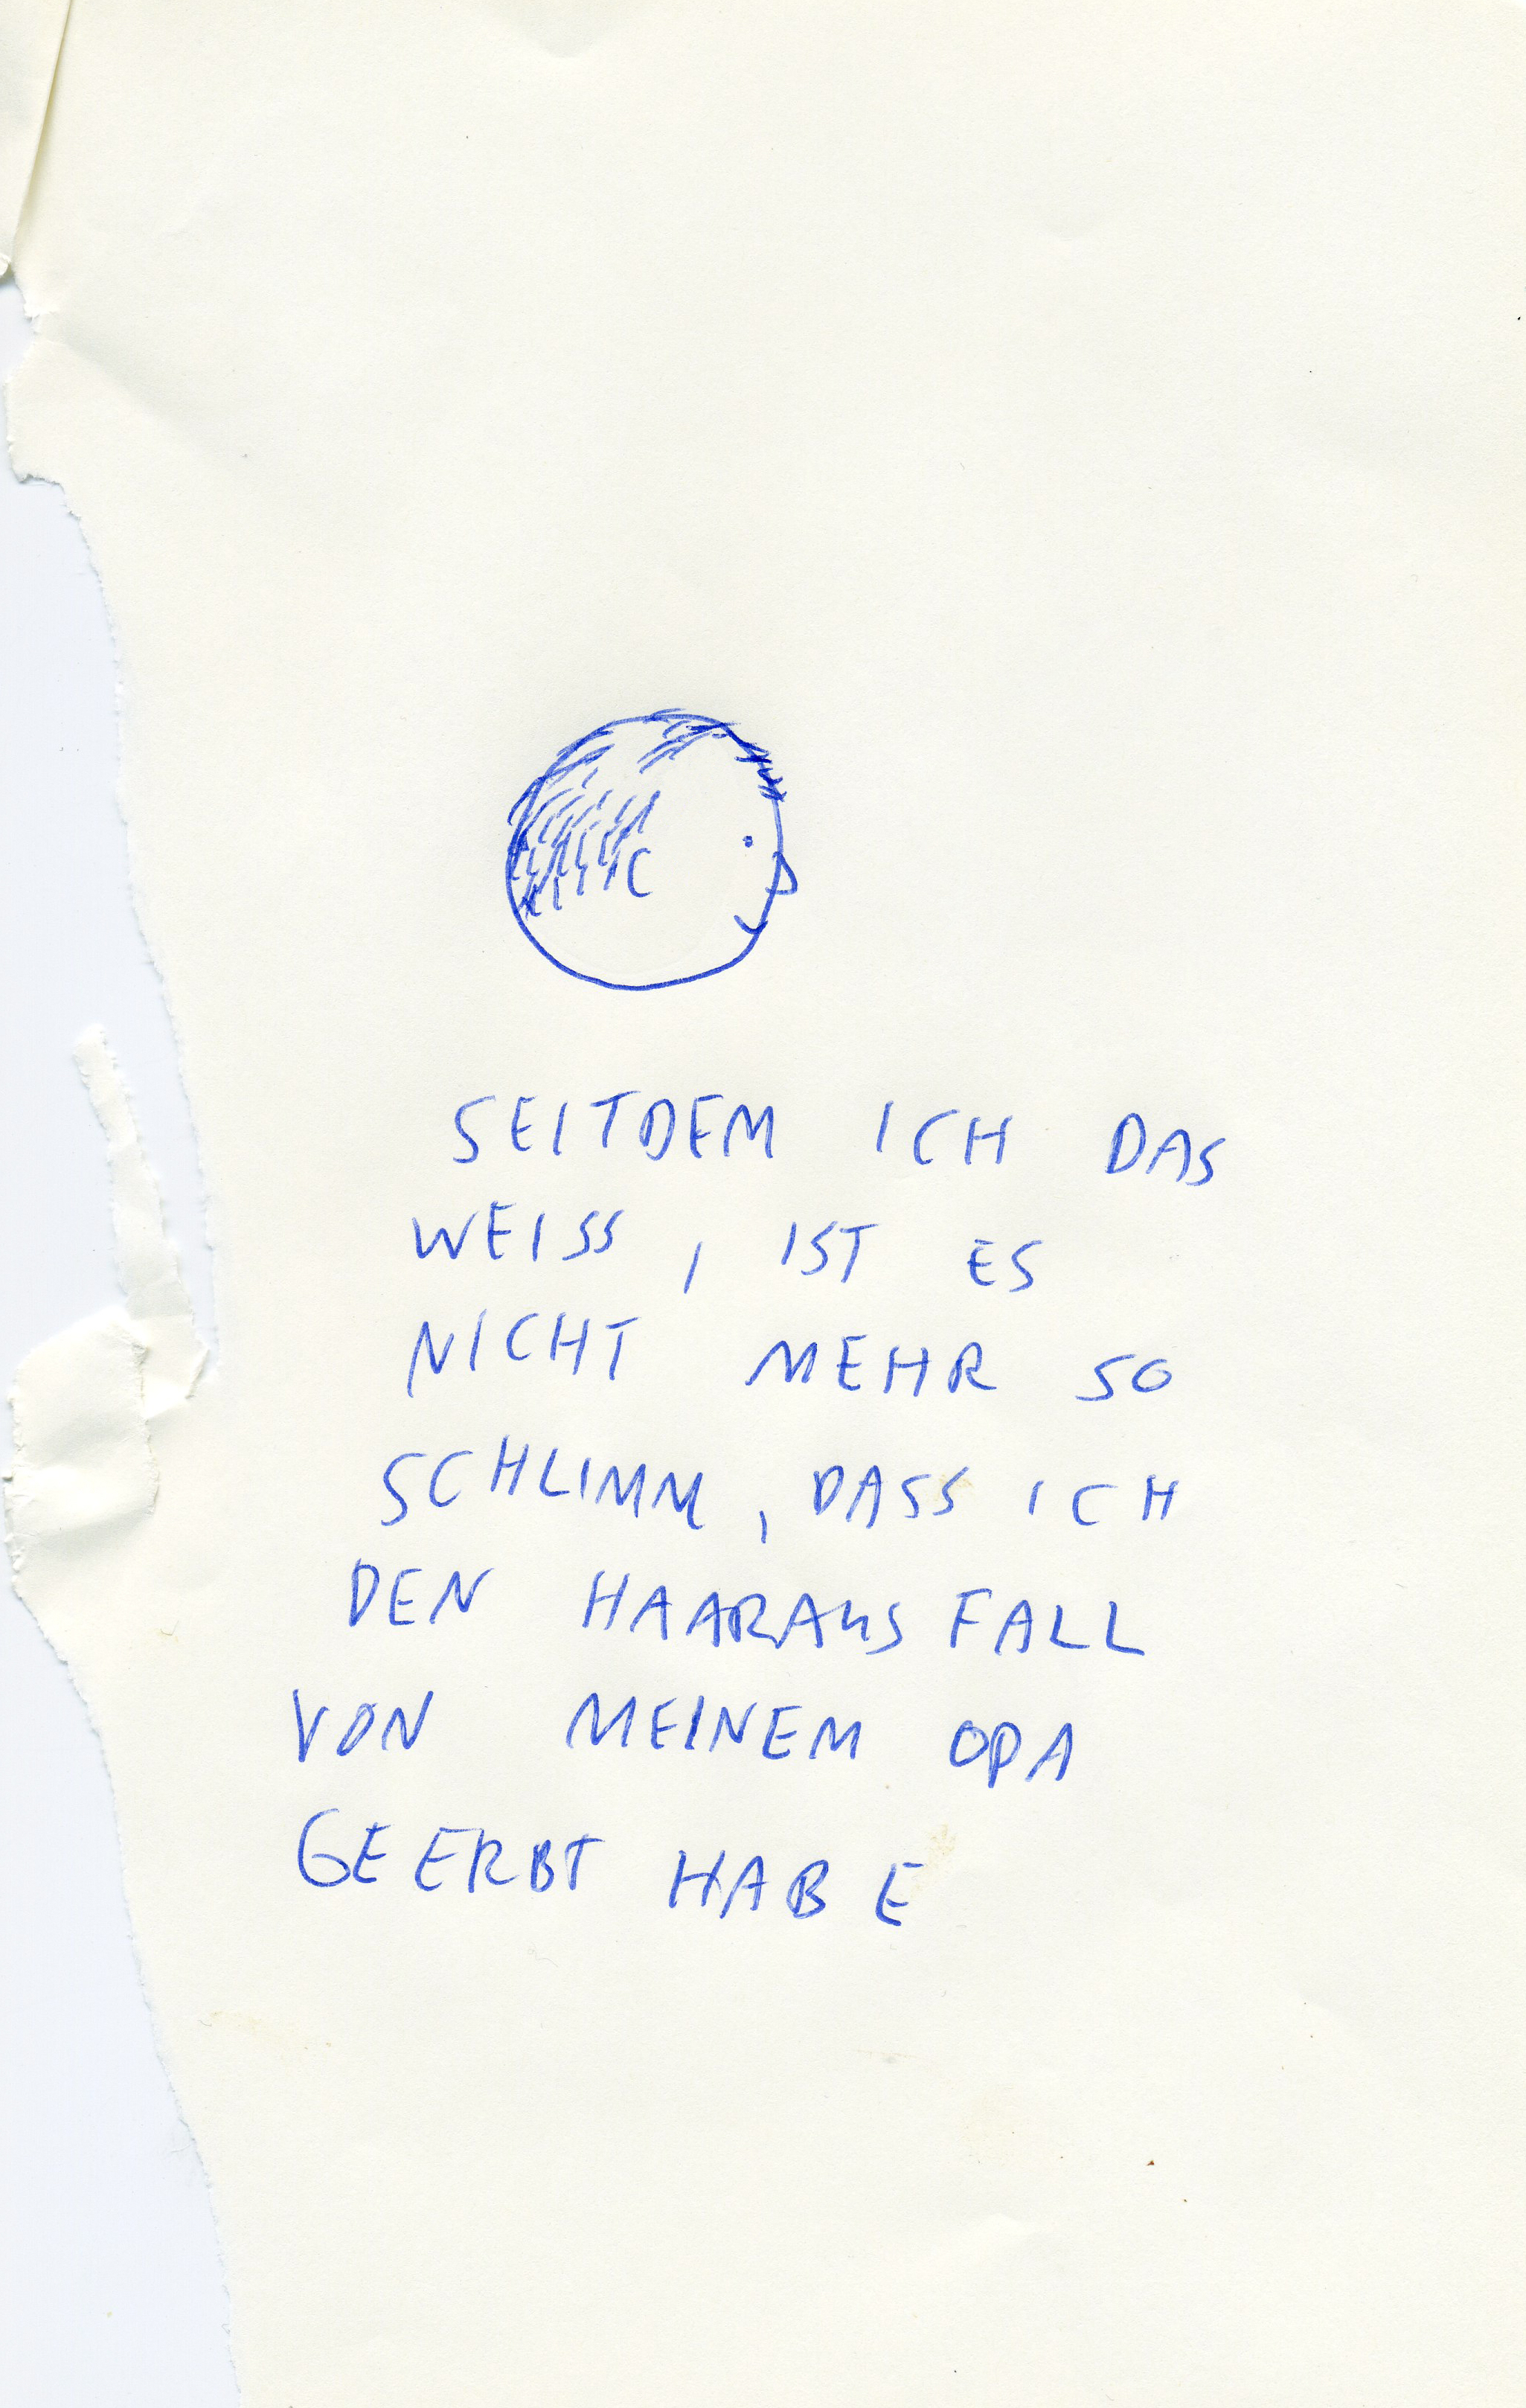 SEITDEM ICH DAS
WEISS, IST ES
NICHT MEHR SO
SCHLIMM, DASS ICH
DEN HAARAUSFALL
VON MEINEM OPA
GEERBT HABE